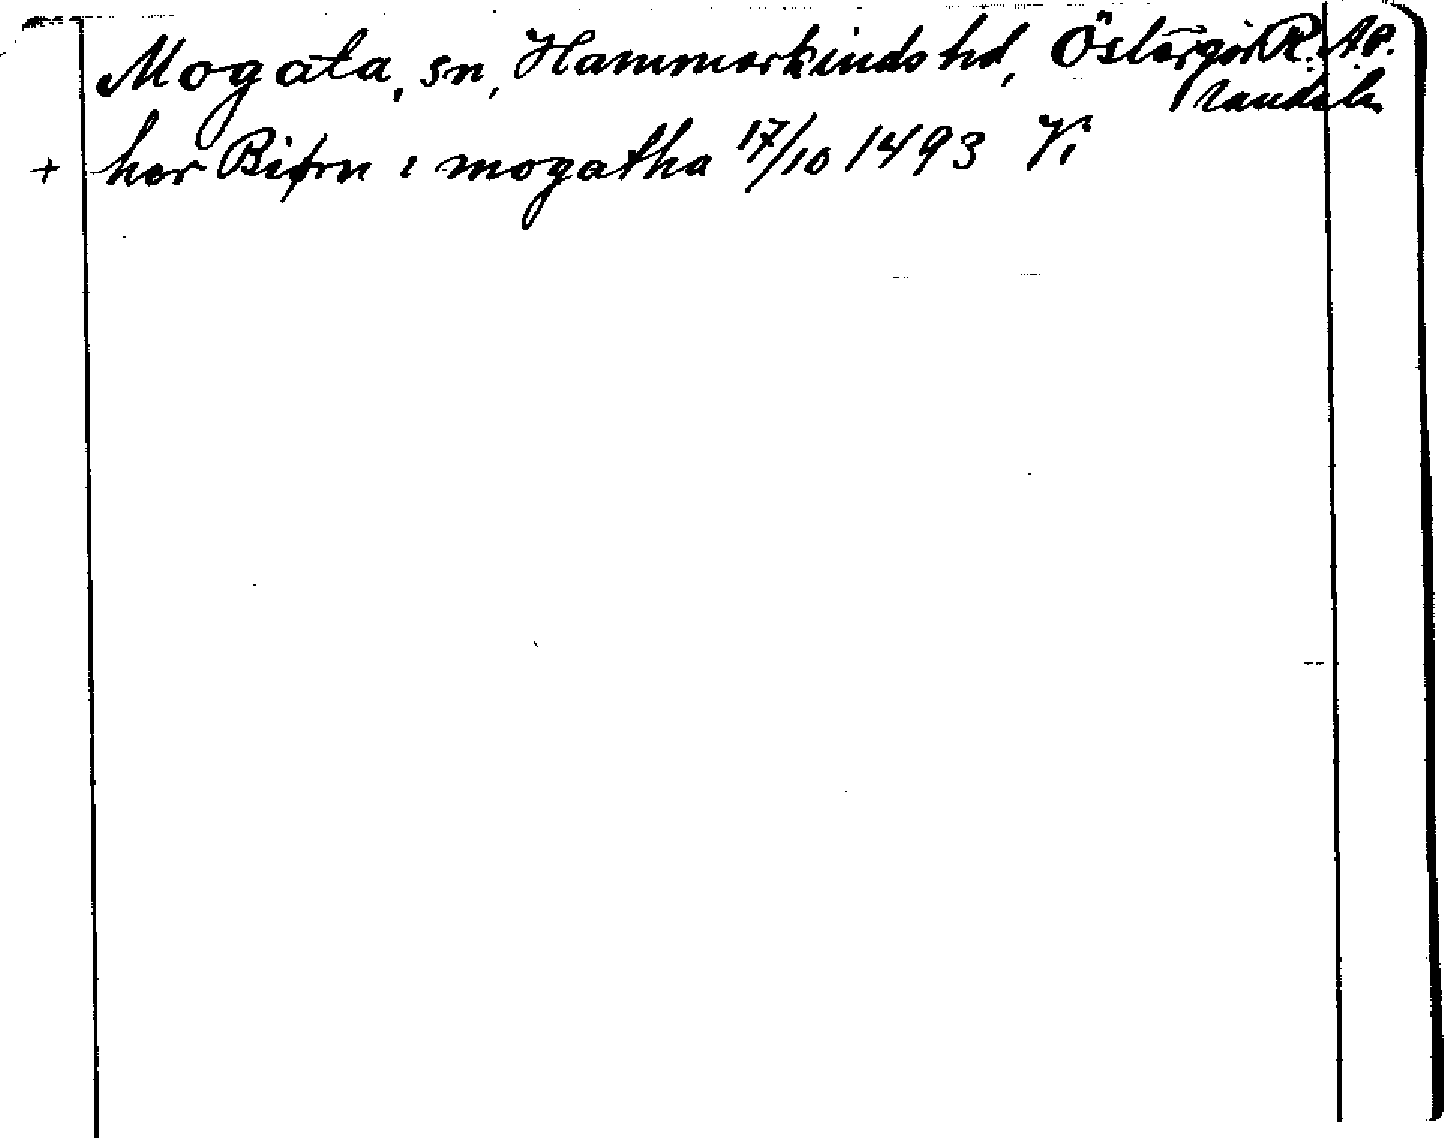 Mogata, sn, Hammarkinds hd, Östergör R.A.P.
+ her Biørn i mogatha 17/10 1493